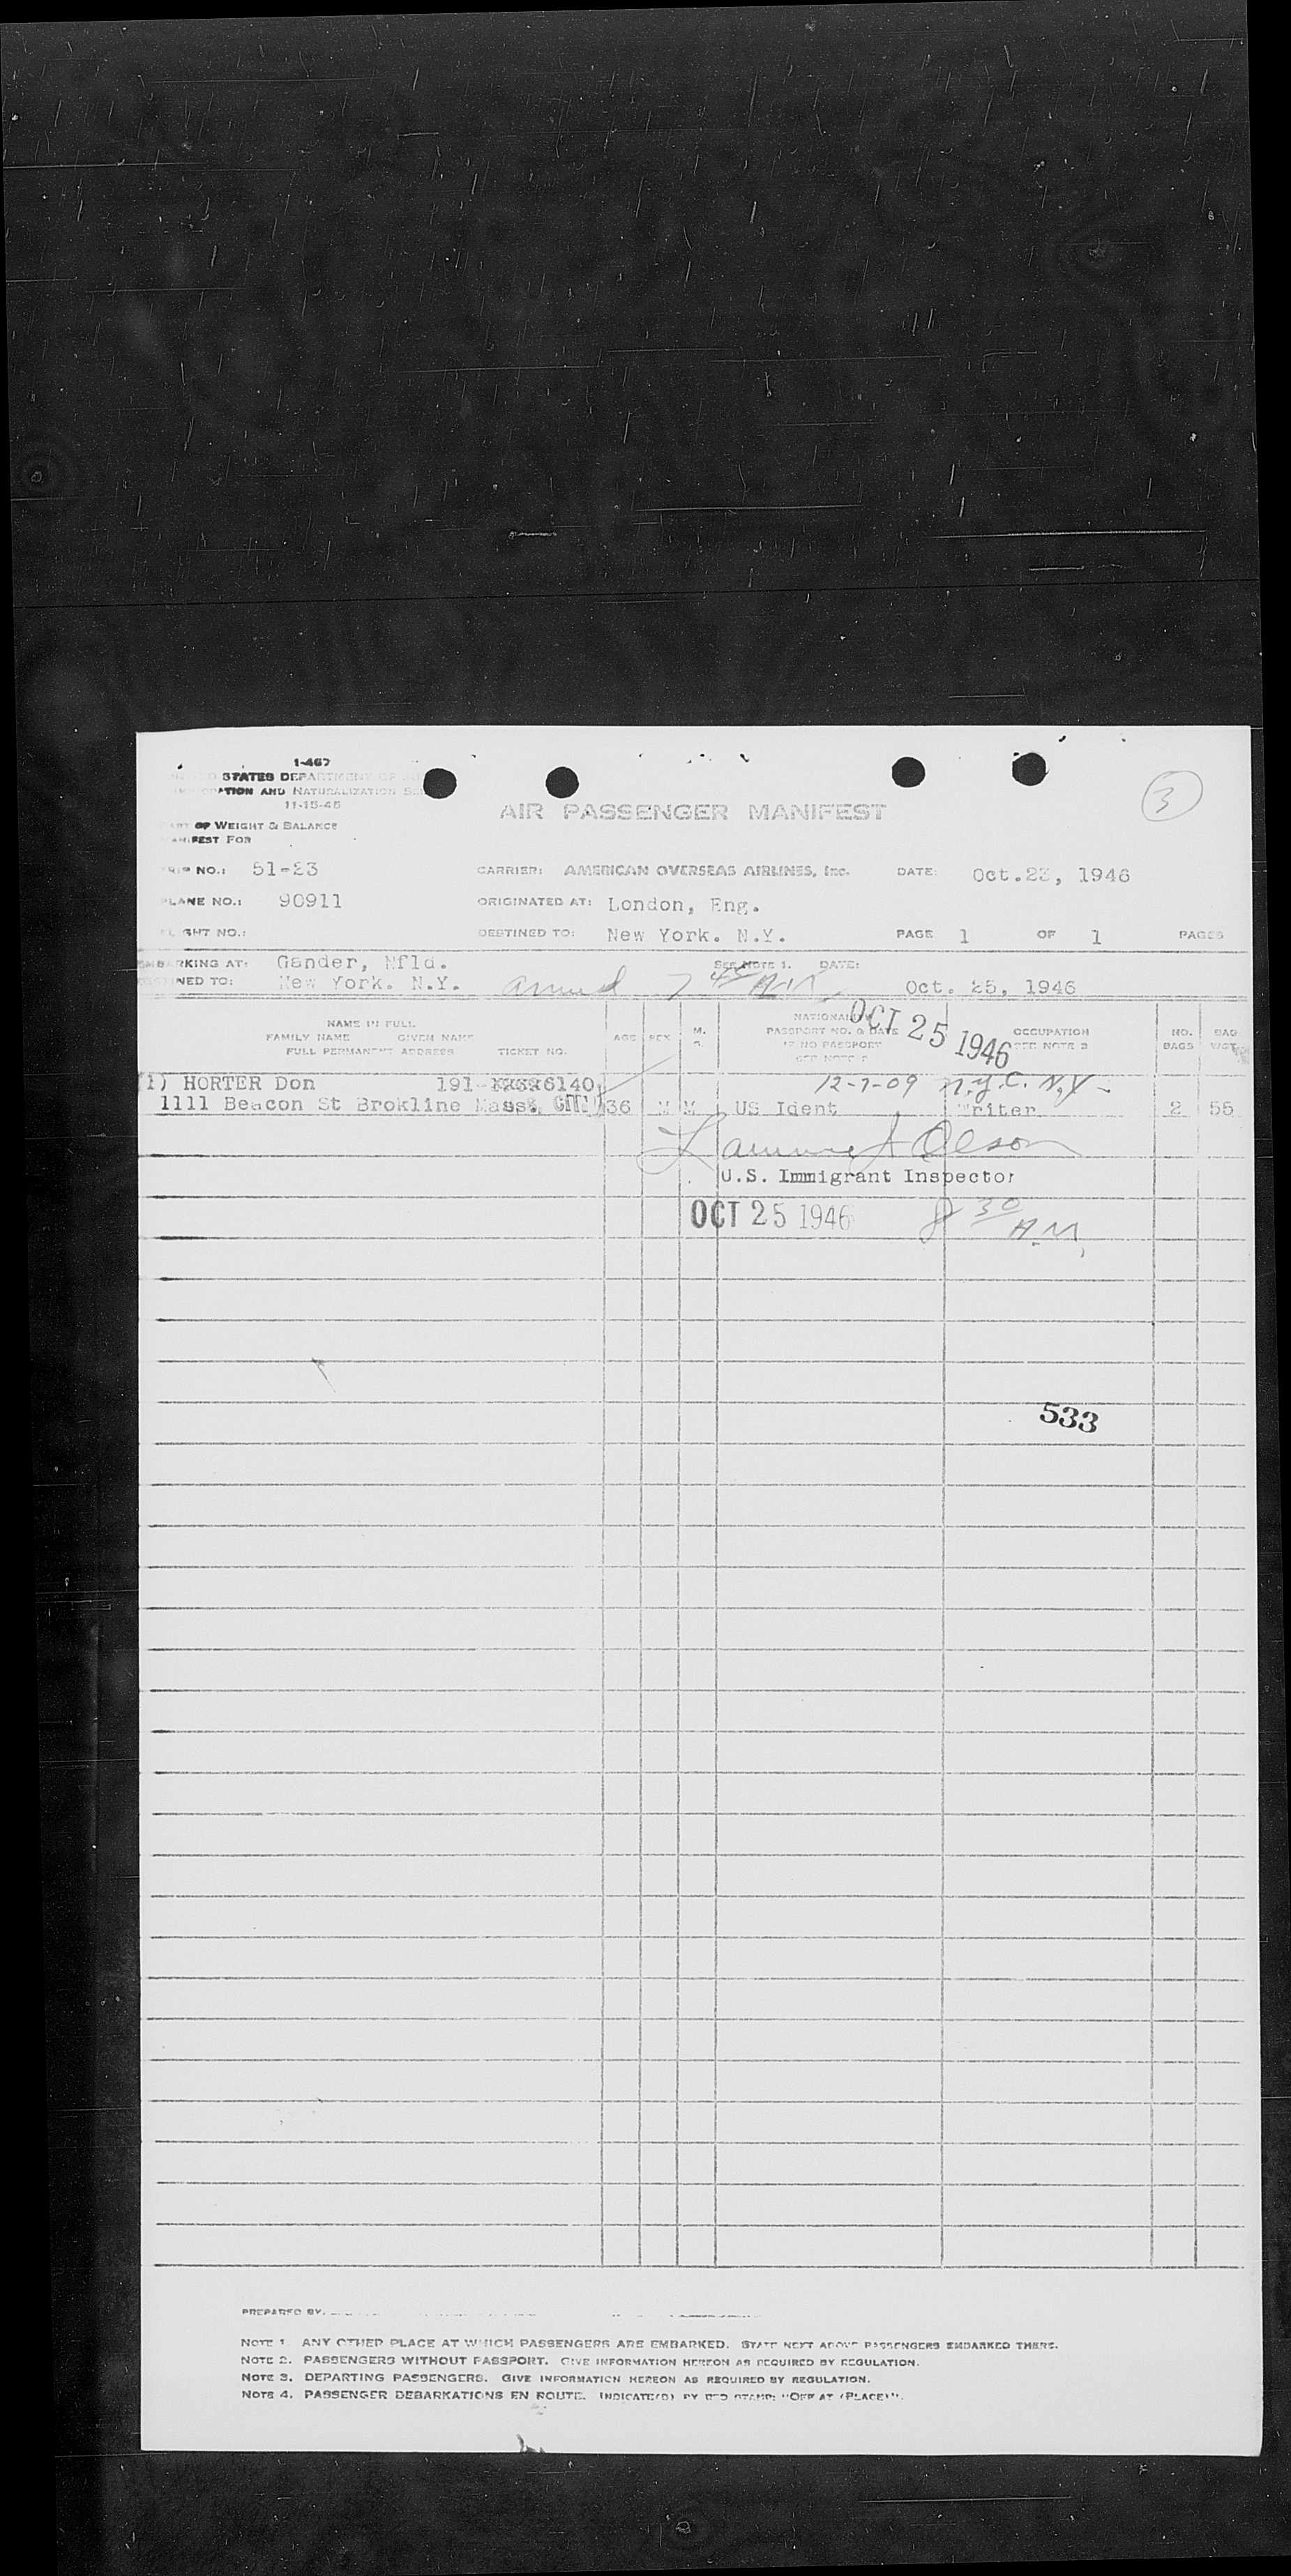 1-467
STATES DEPARTMENT OF
AND NATURALIZATION
11-15-45
AIR PASSENGER MANIFEST
3
OF WEIGHT & BALANCE
FEST FOR
NO.: 51-23 CARRIER: AMERICAN OVERSEAS AIRLINES, Inc. DATE: Oct.23, 1946
PLANE NO.: 90911 ORIGINATED AT: London, Eng.
GHT NO.: DESTINED TO: New York. N.Y. PAGE 1 OF 1 PAGES
EMBARKING AT: Gander, Nfld. SEE NOTE 1. DATE:
NED TO: New York. N.Y. 7 45 A.M. Oct. 25, 1946
OCT 25 1946
NAME IN FULL NATIONALITY
FAMILY NAME GIVEN NAME AGE SEX M. PASSPORT NO. & DATE OCCUPATION NO. BAG
FULL PERMANENT ADDRESS TICKET NO. S. IF NO PASSPORT SEE NOTE 3 BAGS WGT.
SEE NOTE 2
1) HORTER Don 191- 6140 12-7-09 N.Y.C. N.Y-
1111 Beacon St Brokline Mass. 36 M M US Ident Writer 2 55
Olson
U.S. Immigrant Inspector
OCT 25 1946 8 30 A.M.
533
PREPARED BY.
NOTE 1. ANY OTHER PLACE AT WHICH PASSENGERS ARE EMBARKED. STATE NEXT ABOVE PASSENGERS EMBARKED THERE.
NOTE 2. PASSENGERS WITHOUT PASSPORT. GIVE INFORMATION HEREON AS REQUIRED BY REGULATION.
NOTE 3. DEPARTING PASSENGERS. GIVE INFORMATION HEREON AS REQUIRED BY REGULATION.
NOTE 4. PASSENGER DEBARKATIONS EN ROUTE. INDICATE(D) BY RED STAMP: "OFF AT (PLACE)".